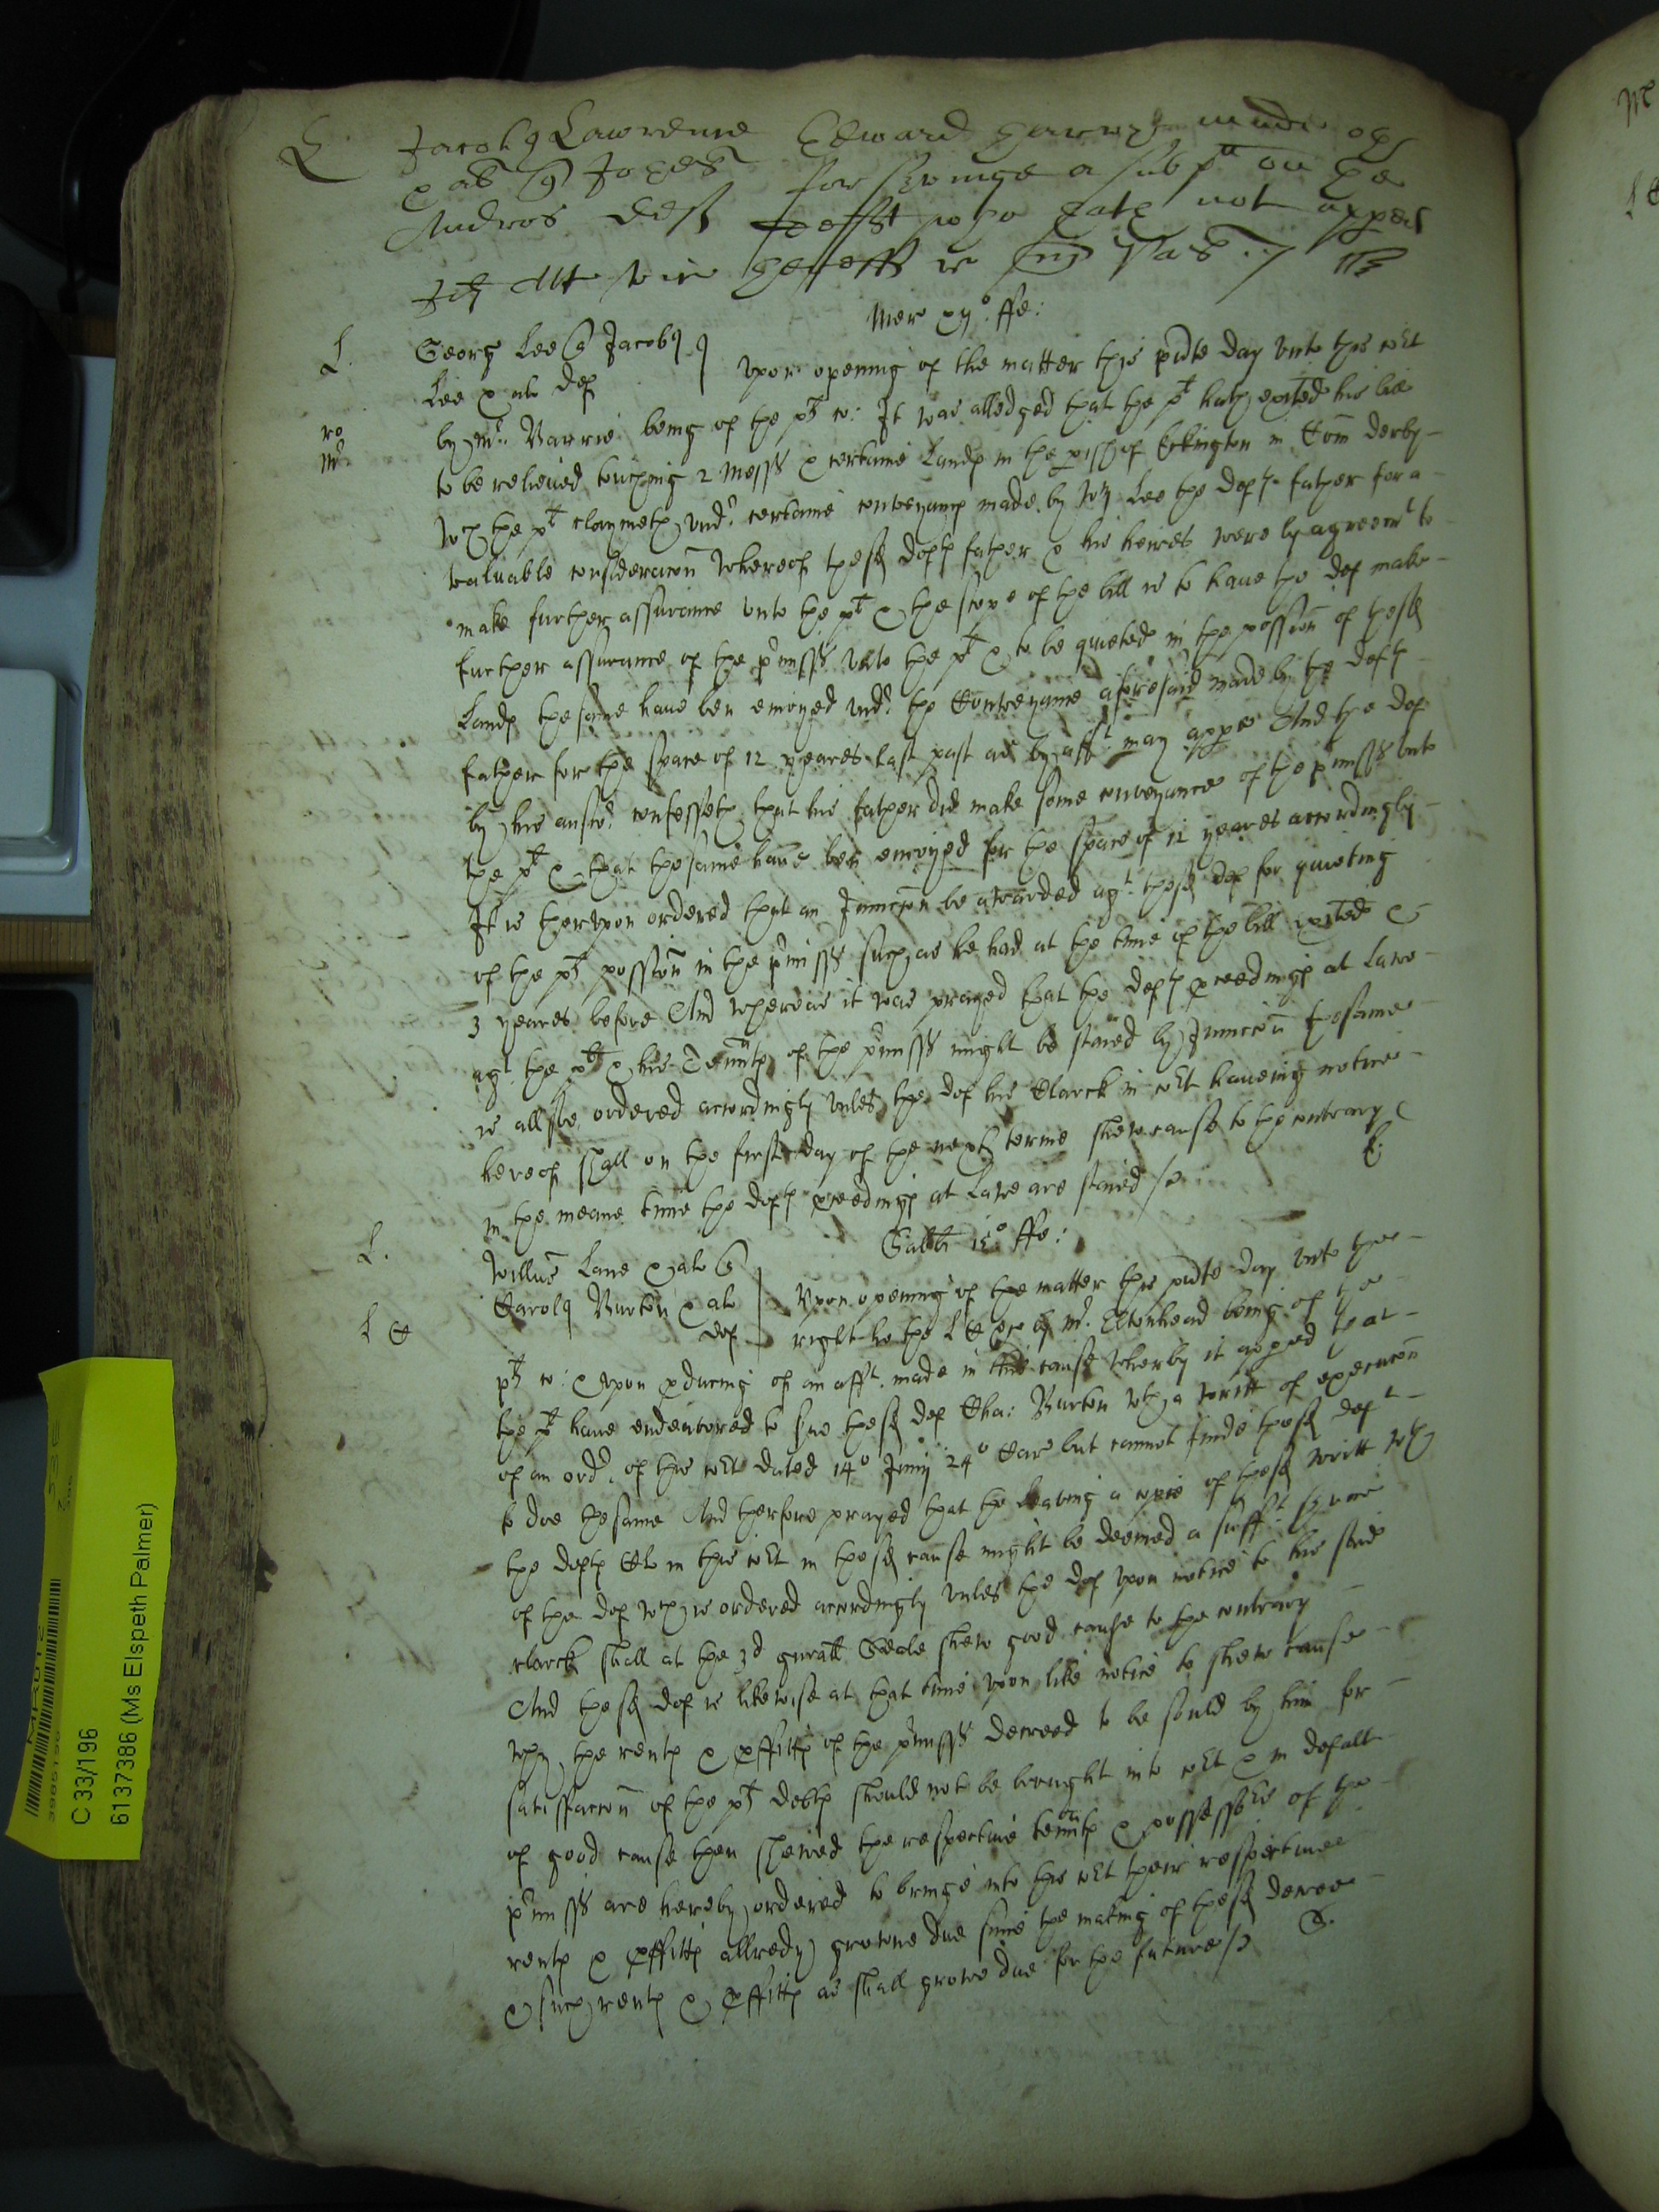 L Jacobus Lawrence Edward made oath
& als q Josephus for serving a subpa on the
Andros deft defft who hath not appeared
Ideo Att vic
Mer xii° ffe:
L. George Lee q Jacobus
Lee & als def Upon opening of the matter this pnte day unto this cort
ro by Mr. Barrie being of the pts co: It was alledged that the pt hath exhited his bill
Mr to be relieved touching 2 messs & certaine Lands in the pish of Eckington in Com derby
wch the pt claymeth undr certaine conveyance made by Wm Lee the defts father for a
valuable consideracon whereof these defts father & his heires were by agreemt to
make further assurance unto the pt & the scope of the bill is to have the def make
further assurance of the pmisss unto the pt & to be quieted in the possion of these
Lands the same have ben enioyed undr the Conveyance aforesaid made by the defts
father for the space of 12 yeares last past as by afft may appe And the def
by his answr confesseth that his father did make some conveyance of the pmisss unto
the pt & that the same have ben enioyed for the space of 12 yeares accordingly
It is therupon ordered that an Iniuncon be awarded agt these def for quieting
of the pts possion in the pmisss such as he had at the time of the bill exhited &
3 yeares before And whereas it was prayed that the defts pceedings at Lawe
agt the pt & his Tennts of the pmisss might be staied by Iniuncon the same
is allsoe ordered accordingly unles the def his Clarck in cort haveing notice
hereof shall on the first day of the next terme shew cause to the contrary
in the meane time the defts pceedings at Lawe are staied /
Sabti 15° ffe:
L. Willus Lane & als q
Carolus Burton & als Upon opening of the matter this pnte day unto the
L C def right ho the L C by Mr. Eltonhead being of the
pts co: & upon pducing of an afft made in this cause wherby it apped that
the pt have endeavored to sve these def Cha: Burton with a writt of execucon
of an ordr of this cort dated 14° Junij 24° Car but cannot finde these deft
to doe the same And therfore prayed that the leaving a copie of these writt with
the defts Clr in this cort in these cause might be deemed a sufft service
of the def wch is ordered accordingly unles the def upon notice to his said
clarck shall at the 3d genrall Seale shew good cause to the contrary
And these def is likewise at that time upon like notice to shew cause
why the rents & pffitts of the pmisss decreed to be sould by him for
satisfaccon of the pts debts should not be brought into cort & in defalt
of good cause then shewed the respective tennts & possessors of the
pmisss are hereby ordered to bringe into this cort their respective
rents & pffitts allredy growne due since the making of these decree
& such rents & pffitts as shall growe due for the future / S.
C 33/196
6137386 (Ms Elspeth Palmer)